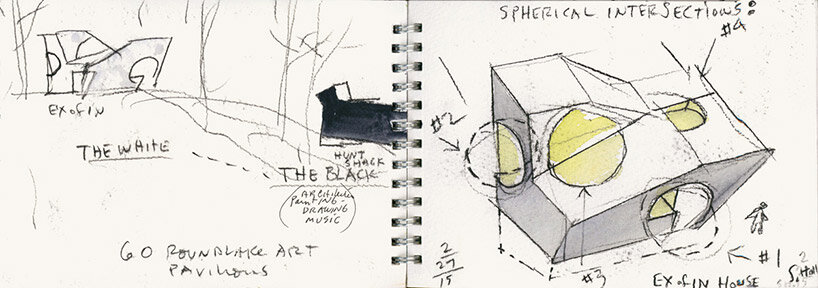 EX of IN
THE WHITE
HUNT
SHACK
THE BLACK
ARCHITECTURE
PAINTING-
DRAWING
MUSIC
60 ROUNDLAKE ART
PAVILIONS
SPHERICAL INTERSECTIONS:
#4
#2
#3
#1
2
27
15
EX of IN HOUSE
S. Holl